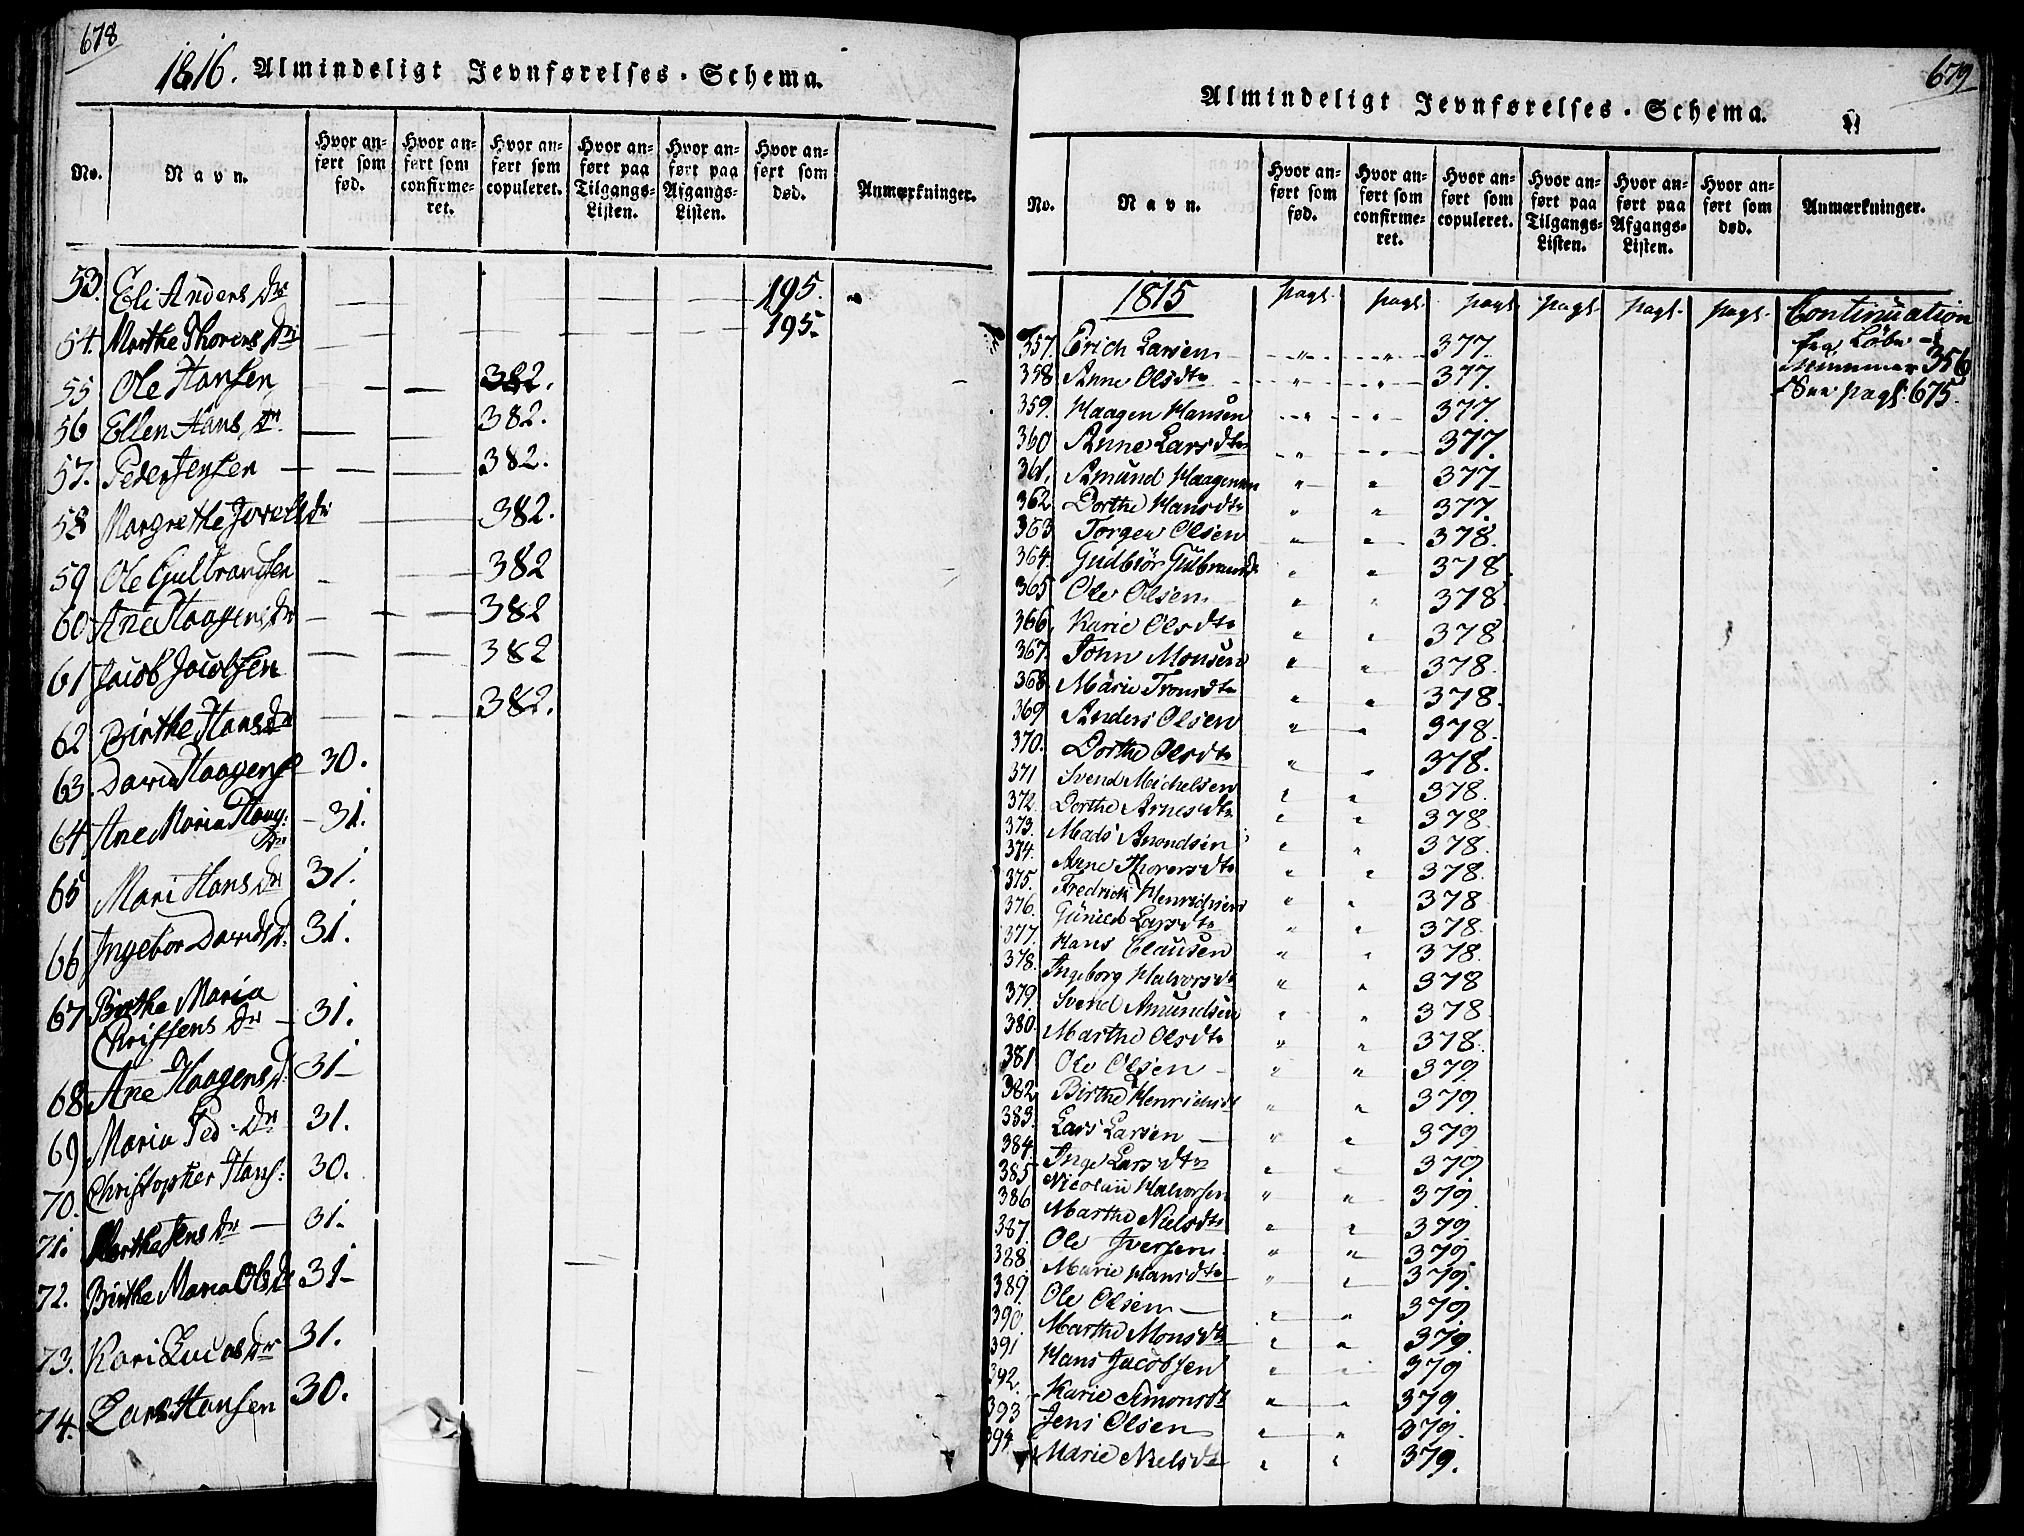 678
1816. Almindeligt Jevnførelses-Schema.
No.
Navn.
Hvor an-
ført som
fød.
Hvor an-
ført som
confirme-
ret.
Hvor an-
ført som
copuleret.
Hvor an-
ført paa
Tilgangs-
Listen.
Hvor an-
ført paa
Afgangs-
Listen.
Hvor an-
ført som
død.
Anmærkninger.
53. Eli Anders Dr 195.
54. Marthe Thorens Dr 195.
55 Ole Hansen 382.
56 Ellen Hans Dr. 382.
57. Peder Jensen 382.
58 Margrethe Dr 382.
59 Ole Gulbrandsen 382
60 Ane Haagens Dr 382
61 Jacob Jacobsen 382
62 Birthe Hans Dr 382.
63. David Haagens 30.
64 Ane Maria Haag:
Dr 31.
65 Mari Hans Dr 31.
66 Ingebor Davids D. 31.
67 Birthe Maria
Christens Dr 31.
68 Ane Haagens D. 31
69 Maria Ped. Dr 31.
70. Christopher Hans: 30.
71. Marthe Jens Dr 31.
72. Birthe Maria Ols Dr 31
73. Kari Lucas Dr 31.
74. Lars Hansen 30.
679
Almindeligt Jevnførelses-Schema.
No.
Navn.
Hvor an-
ført som
fød.
Hvor an-
ført som
confirme-
ret.
Hvor an-
ført som
copuleret.
Hvor an-
ført paa
Tilgangs-
Listen.
Hvor an-
ført paa
Afgangs-
Listen.
Hvor an-
ført som
død.
Anmærkninger.
1815 pag. pag. pag. pag. pag. pag. Continuation
fra Løbe-
Nummer 356
See pag. 675.
357. Erich Larsen " " 377.
358 Anne Olsdtr " " 377.
359. Haagen Hansen " " 377.
360 Anne Larsdtr " " 377.
361. Amund Haagensen " " 377
362 Dorthe Hansdtr " " 377.
363 Torgen Olsen " " 378.
364. Gudbiør Gulbrandsd " " 378
365 Ole Olsen " " 378
366. Karie Olsdtr " " 378
367. John Monsen " " 378
368 Marie Tronsdtr " " 378.
369 Anders Olsen " " 378.
370. Dorthe Olsdtr " " 378.
371 Svend Michelsen " " 378.
372. Dorthe Arnesdtr " " 378
373. Mads Amondsen " " 378.
374. Anne Thorersdtr " " 378.
375. Fredrich Henrichsen " " 378
376. Larsdtr " " 378.
377. Hans Clausen " " 378.
378. Ingeborg Halvorsdtr " " 378
379. Svend Amundsen " " 378
380. Marthe Olsdtr " " 378.
381 Ole Olsen " " 379
382 Birthe Henrichsdt " " 379.
383. Lars Larsen " " 379
384. Inge Larsdtr " " 379
385 Nicolaii Halvorsen " " 379.
386 Marthe Nielsdtr " " 379.
387. Ole Iversen " " 379.
388 Marie Hansdtr " " 379.
389. Ole Olsen " " 379
390. Marthe Monsdtr " " 379.
391 Hans Jacobsen " " 379
392. Karie Amonsdt " " 379.
393 Jens Olsen " " 379.
394. Marie Nielsdtr " " 379.